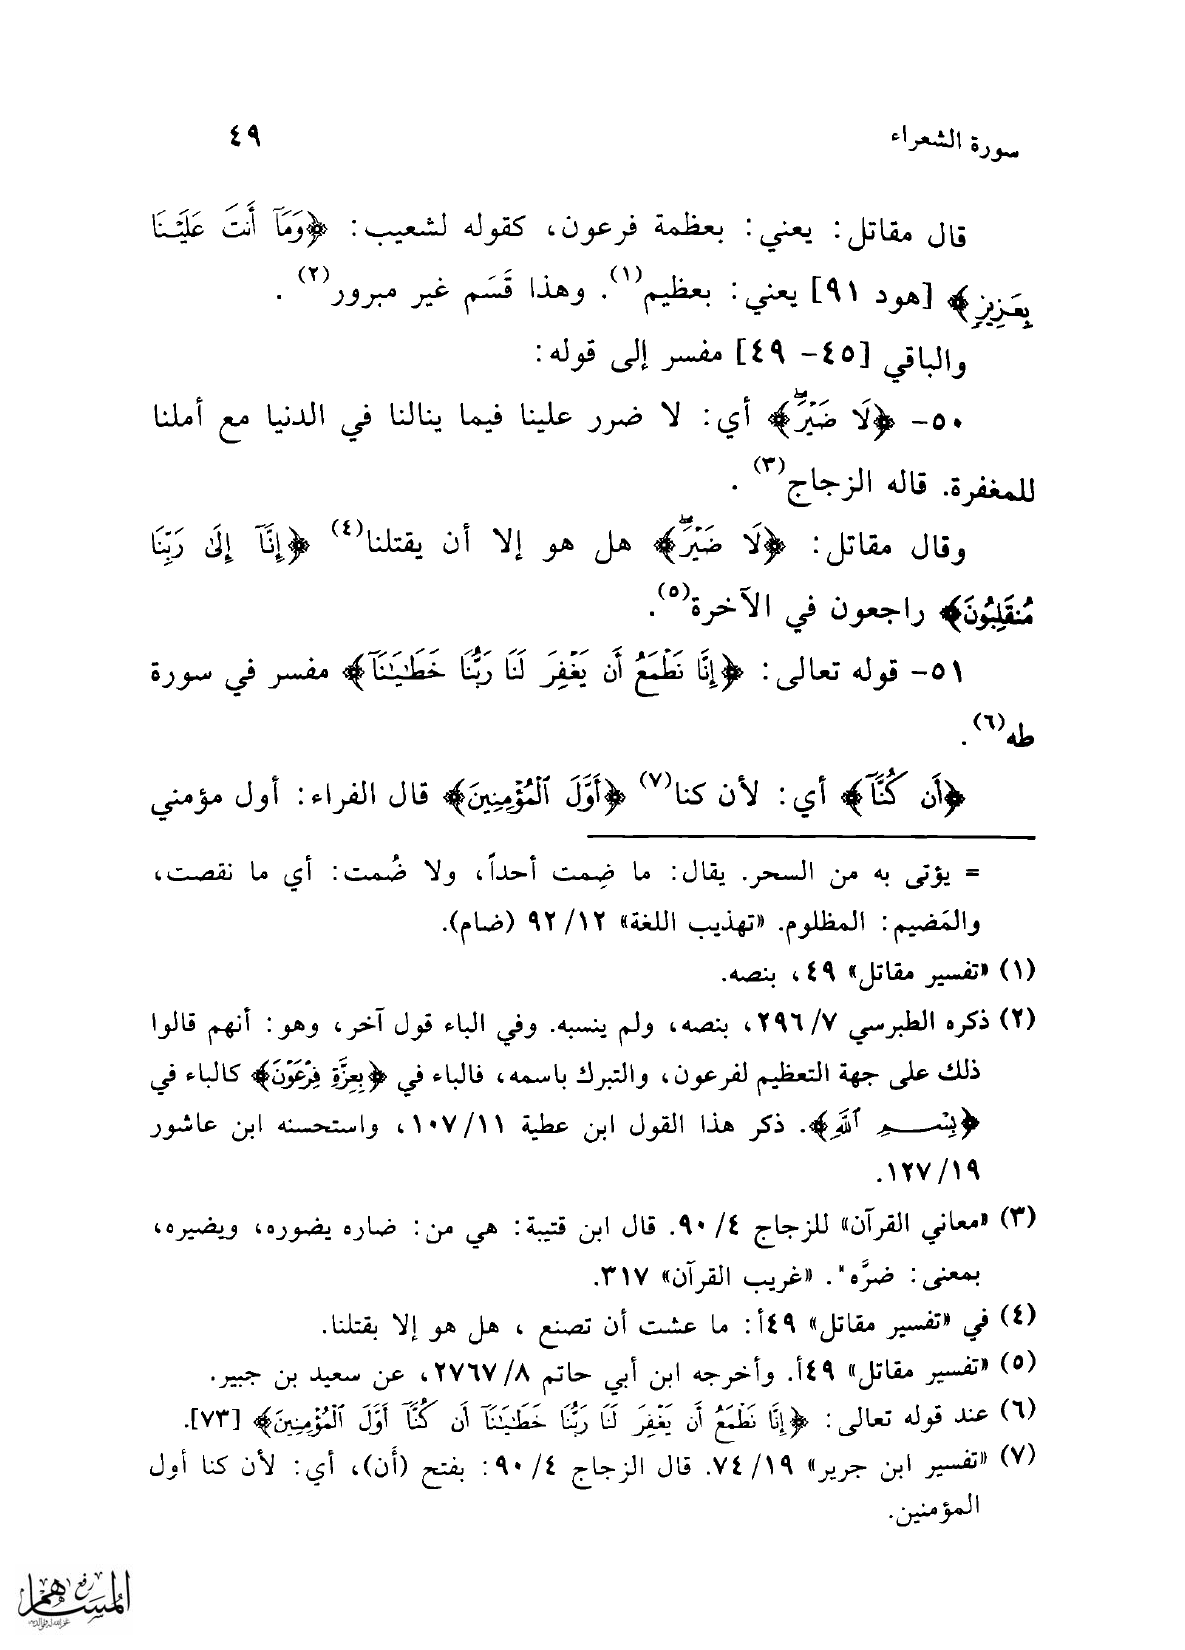 سورة الشعراء ٤٩
قال مقاتل: يعني: بعظمة فرعون، كقوله لشعيب: ﴿وَمَآ أَنتَ عَلَيۡنَا
بِعَزِيزٖ﴾ [هود ٩١] يعني: بعظيم(١). وهذا قَسَم غير مبرور(٢) .
والباقي [٤٥- ٤٩] مفسر إلى قوله:
٥٠- ﴿لَا ضَيۡرَۖ﴾ أي: لا ضرر علينا فيما ينالنا في الدنيا مع أملنا
للمغفرة. قاله الزجاج(٣) .
وقال مقاتل: ﴿لَا ضَيۡرَۖ﴾ هل هو إلا أن يقتلنا(٤) ﴿إِنَّآ إِلَىٰ رَبِّنَا
مُنقَلِبُونَ﴾ راجعون في الآخرة(٥).
٥١- قوله تعالى: ﴿إِنَّا نَطۡمَعُ أَن يَغۡفِرَ لَنَا رَبُّنَا خَطَٰيَٰنَآ﴾ مفسر في سورة
طه(٦) .
﴿أَن كُنَّآ﴾ أي: لأن كنا(٧) ﴿أَوَّلَ ٱلۡمُؤۡمِنِينَ﴾ قال الفراء: أول مؤمني
= يؤتى به من السحر. يقال: ما ضِمت أحداً، ولا ضُمت: أي ما نقصت،
والمَضيم: المظلوم. «تهذيب اللغة» ١٢/ ٩٢ (ضام).
(١) «تفسير مقاتل» ٤٩، بنصه.
(٢) ذكره الطبرسي ٧/ ٢٩٦، بنصه، ولم ينسبه. وفي الباء قول آخر، وهو: أنهم قالوا
ذلك على جهة التعظيم لفرعون، والتبرك باسمه، فالباء في ﴿بِعِزَّةِ فِرۡعَوۡنَ﴾ كالباء في
﴿بِسۡمِ ٱللَّهِ﴾. ذكر هذا القول ابن عطية ١١/ ١٠٧، واستحسنه ابن عاشور
١٩/ ١٢٧.
(٣) «معاني القرآن» للزجاج ٤/ ٩٠. قال ابن قتيبة: هي من: ضاره يضوره، ويضيره،
بمعنى: ضرَّه". «غريب القرآن» ٣١٧.
(٤) في «تفسير مقاتل» ٤٩أ: ما عشت أن تصنع ، هل هو إلا بقتلنا.
(٥) «تفسير مقاتل» ٤٩أ. وأخرجه ابن أبي حاتم ٨/ ٢٧٦٧، عن سعيد بن جبير.
(٦) عند قوله تعالى: ﴿إِنَّا نَطۡمَعُ أَن يَغۡفِرَ لَنَا رَبُّنَا خَطَٰيَٰنَآ أَن كُنَّآ أَوَّلَ ٱلۡمُؤۡمِنِينَ﴾ [٧٣].
(٧) «تفسير ابن جرير» ١٩/ ٧٤. قال الزجاج ٤/ ٩٠: بفتح (أَن)، أي: لأن كنا أول
المؤمنين.